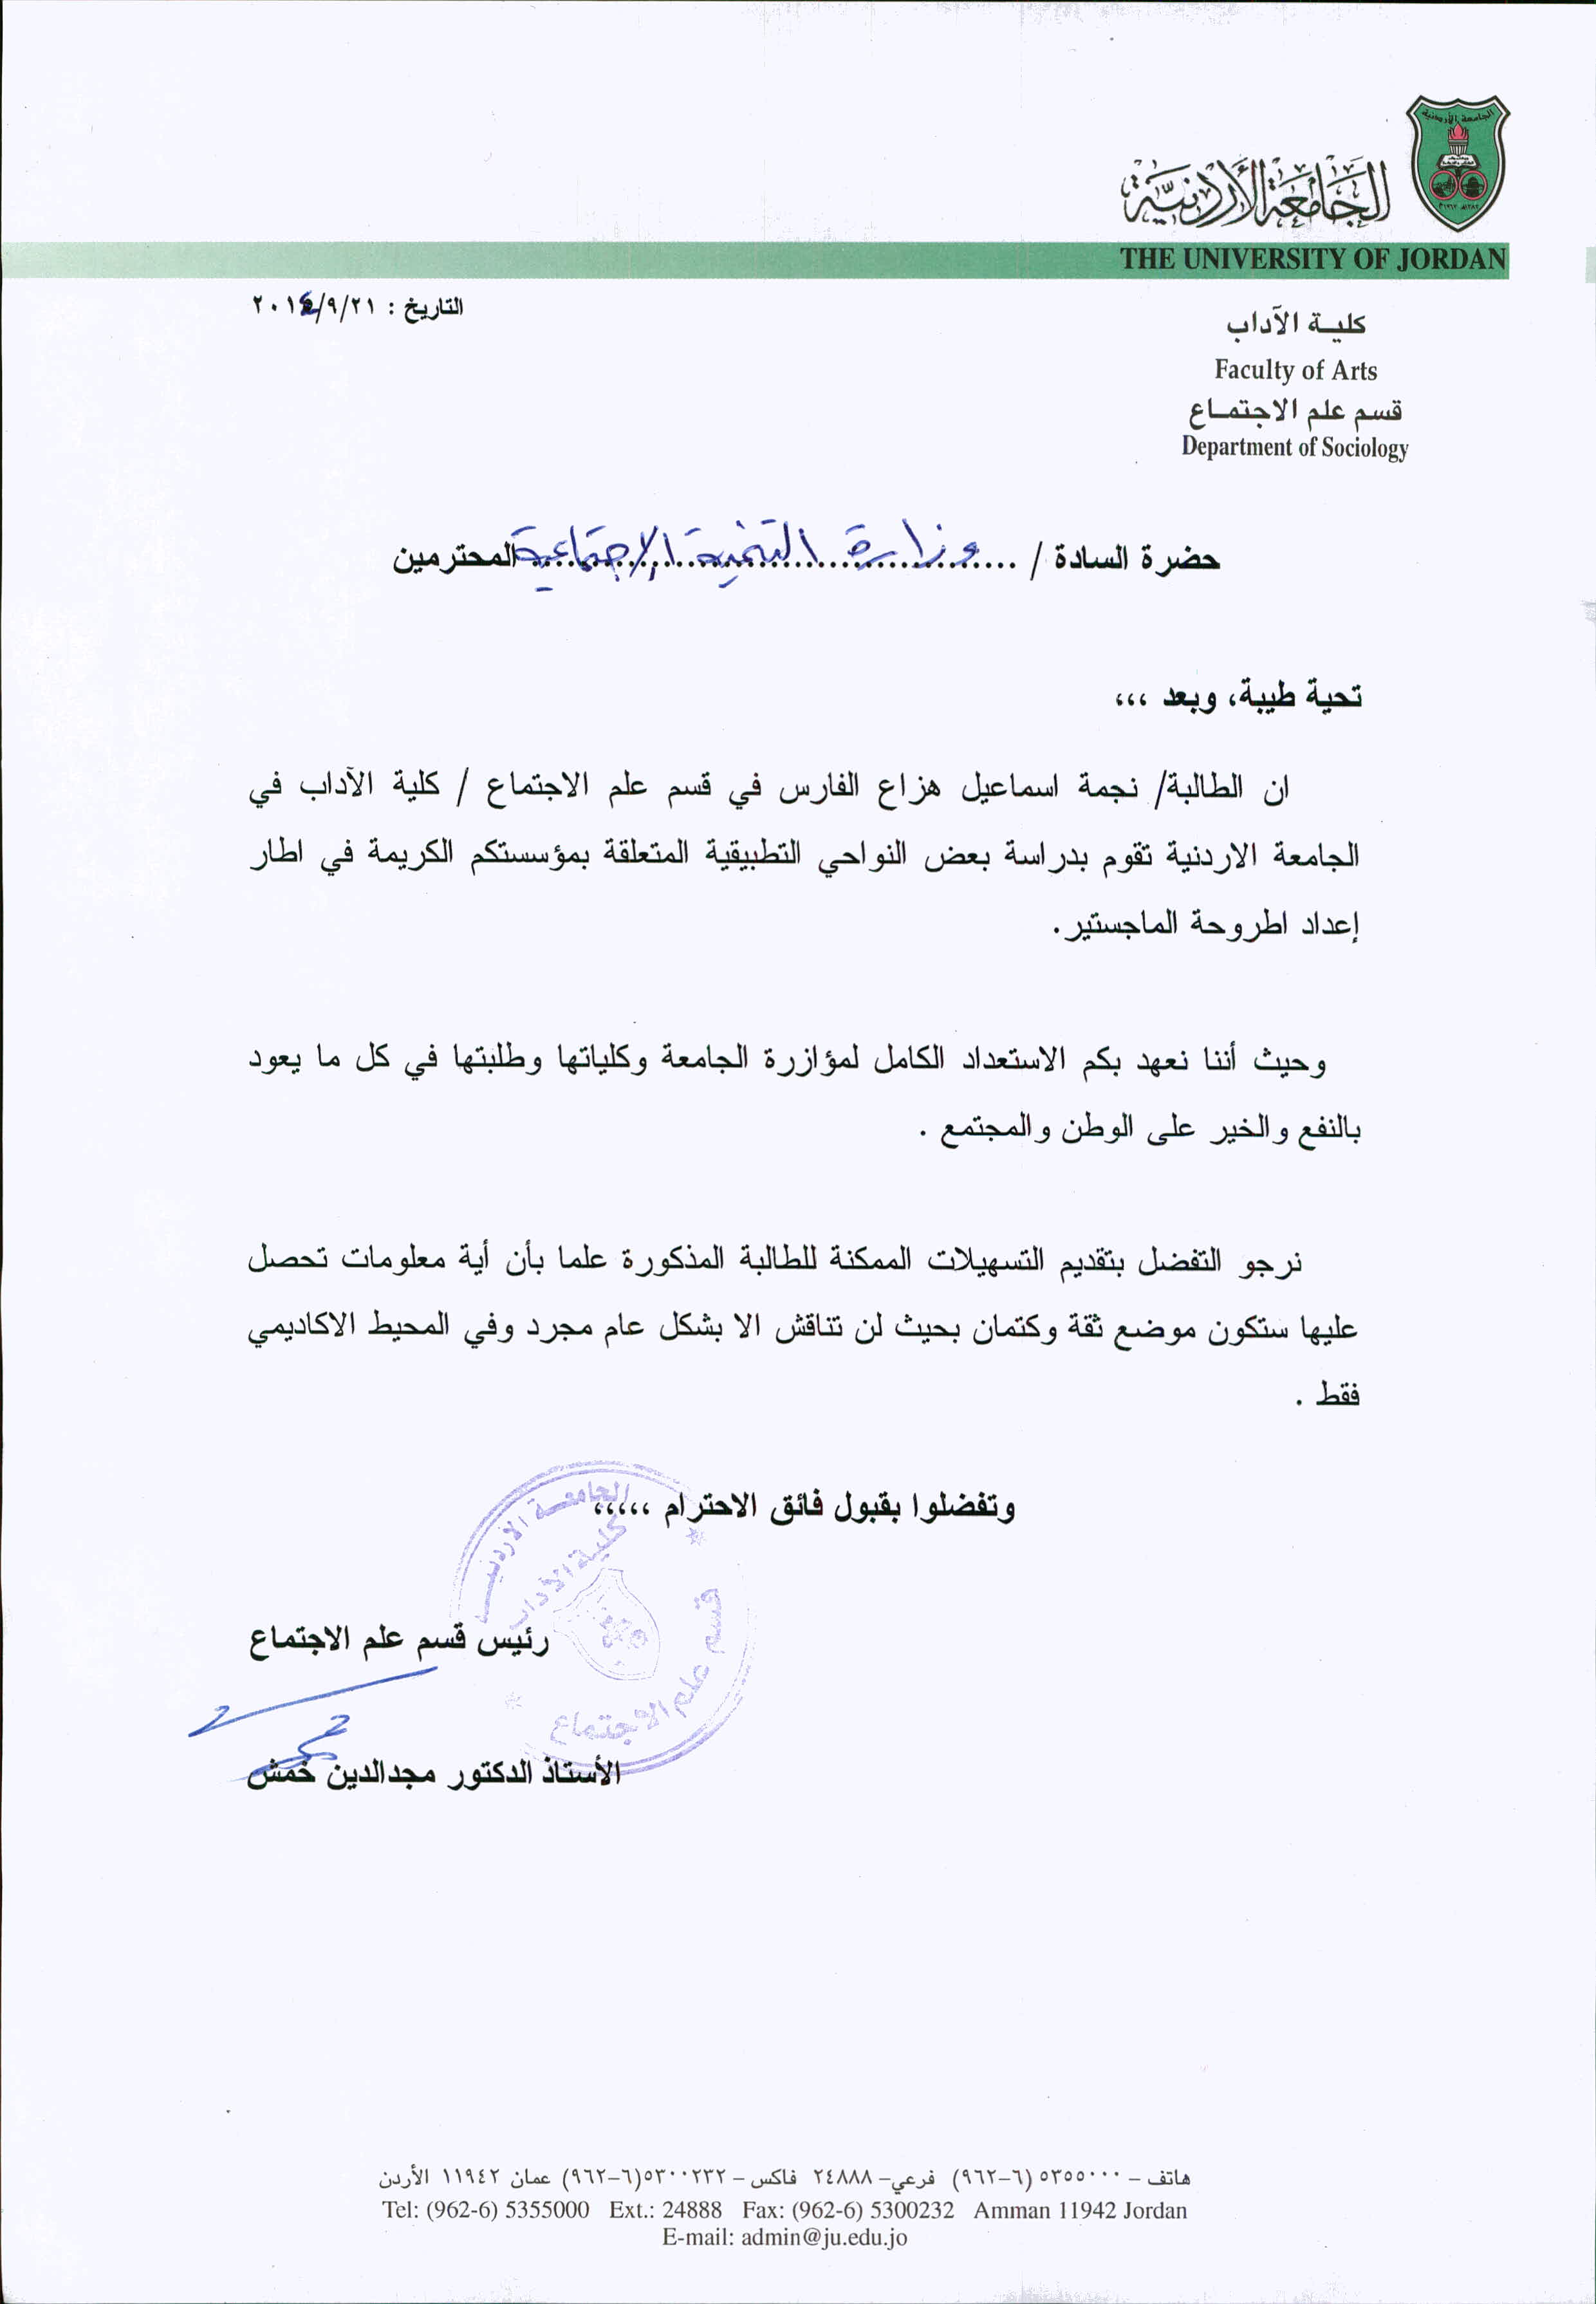 الجامعة الأردنية
الجَامِعَة الأُردنيَّة
THE UNIVERSITY OF JORDAN
كليـة الآداب
Faculty of Arts
قسم علم الاجتمـاع
Department of Sociology
التاريخ : ٢٠١٤/٩/٢١
حضرة السادة / وزارة التنمية الإجتماعية المحترمين
تحية طيبة، وبعد ،،،
ان الطالبة/ نجمة اسماعيل هزاع الفارس في قسم علم الاجتماع / كلية الآداب في
الجامعة الاردنية تقوم بدراسة بعض النواحي التطبيقية المتعلقة بمؤسستكم الكريمة في اطار
إعداد اطروحة الماجستير.
وحيث أننا نعهد بكم الاستعداد الكامل لمؤازرة الجامعة وكلياتها وطلبتها في كل ما يعود
بالنفع والخير على الوطن والمجتمع .
نرجو التفضل بتقديم التسهيلات الممكنة للطالبة المذكورة علما بأن أية معلومات تحصل
عليها ستكون موضع ثقة وكتمان بحيث لن تناقش الا بشكل عام مجرد وفي المحيط الاكاديمي
فقط .
وتفضلوا بقبول فائق الاحترام ،،،،،
الجامعـة الاردنيـة
كلية الآداب
قسم علم الاجتماع
رئيس قسم علم الاجتماع
الأستاذ الدكتور مجدالدين خمش
هاتف – ٥٣٥٥٠٠٠ (٦–٩٦٢) فرعي– ٢٤٨٨٨ فاكس – ٥٣٠٠٢٣٢(٦–٩٦٢) عمان ١١٩٤٢ الأردن
Tel: (962-6) 5355000 Ext.: 24888 Fax: (962-6) 5300232 Amman 11942 Jordan
E-mail: admin@ju.edu.jo